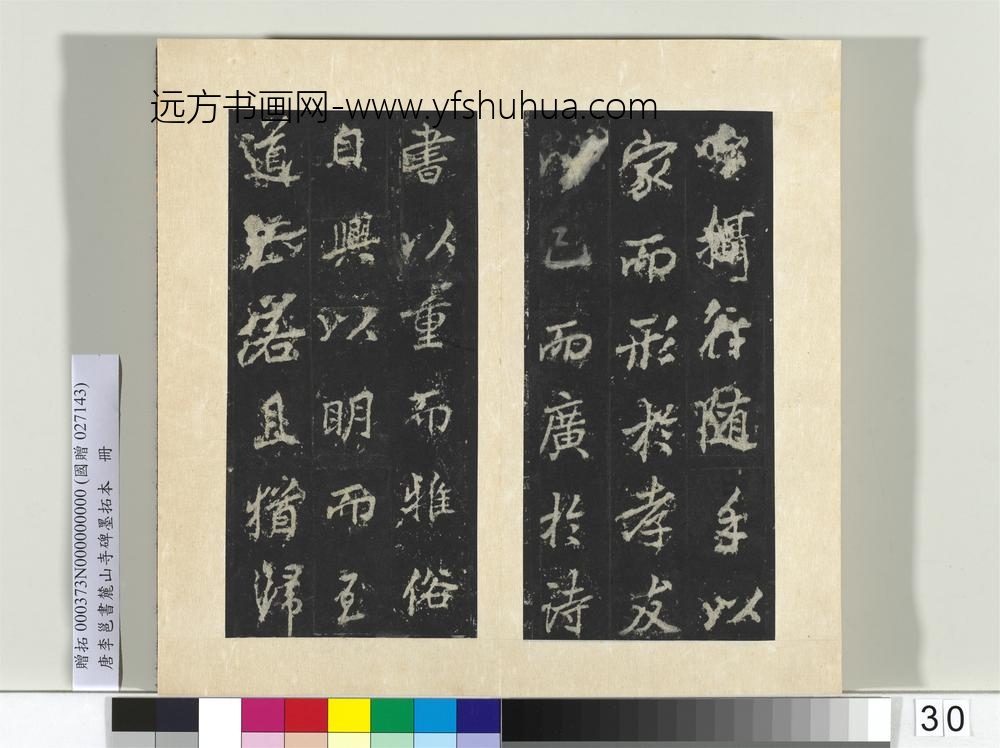 远方书画网-www.yfshuhua.com
攝行隨手以
家而形於孝友
己而廣於詩
書以重而雅俗
自興以明而至
道且猶歸
贈拓 000373N000000000 (國贈 027143)
唐李邕書麓山寺碑墨拓本 冊
30